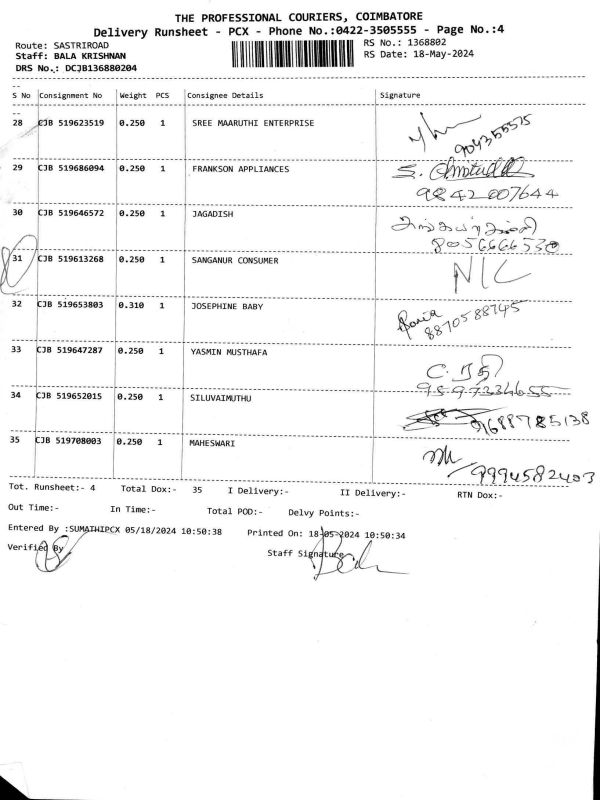 THE PROFESSIONAL COURIERS, COIMBATORE
Delivery Runsheet - PCX - Phone No.:0422-3505555 - Page No.:4
Route: SASTRIROAD RS No.: 1368802
Staff: BALA KRISHNAN RS Date: 18-May-2024
DRS No.: DCJB136880204
S No Consignment No Weight PCS Consignee Details Signature
28 CJB 519623519 0.250 1 SREE MAARUTHI ENTERPRISE
29 CJB 519686094 0.250 1 FRANKSON APPLIANCES
9842007644
30 CJB 519646572 0.250 1 JAGADISH
8056666530
31 CJB 519613268 0.250 1 SANGANUR CONSUMER
32 CJB 519653803 0.310 1 JOSEPHINE BABY
8870588745
33 CJB 519647287 0.250 1 YASMIN MUSTHAFA
34 CJB 519652015 0.250 1 SILUVAIMUTHU
9688785138
35 CJB 519708003 0.250 1 MAHESWARI
9994582403
Tot. Runsheet:- 4 Total Dox:- 35 I Delivery:- II Delivery:- RTN Dox:-
Out Time:- In Time:- Total POD:- Delvy Points:-
Entered By :SUMATHIPCX 05/18/2024 10:50:38 Printed On: 18-05-2024 10:50:34
Verified By Staff Signature